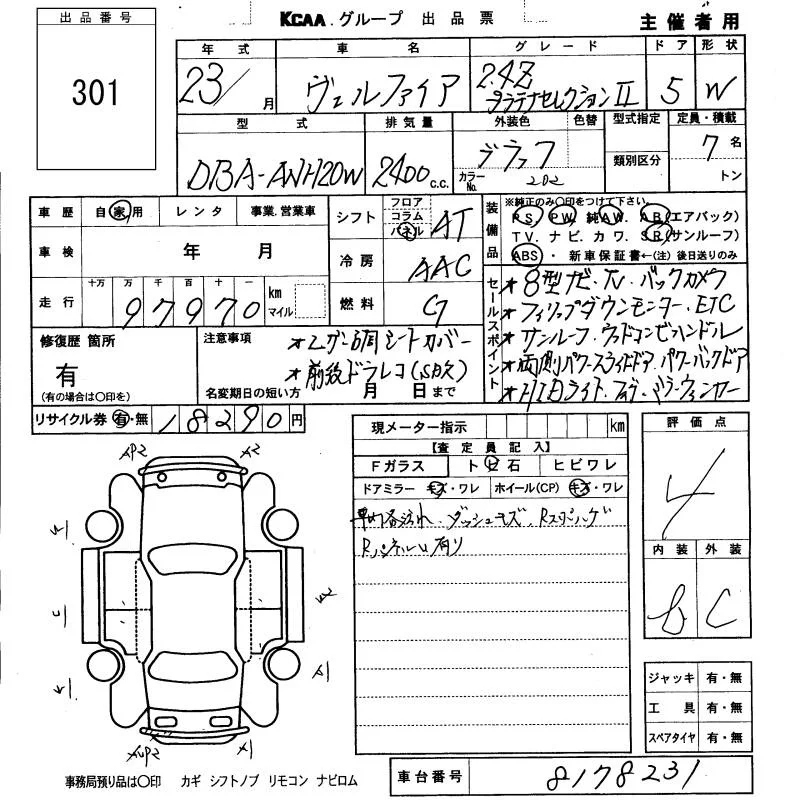 出品番号
301
KCAA.グループ 出品票
主催者用
年式 車名 グレード ドア 形状
23/ 月 ヴェルファイア 2.4Z プラチナセレクションⅡ 5 W
型式 排気量 外装色 色替 型式指定 定員・積載
DBA-ANH20W 2400 c.c. ブラック カラーNo. 202 類別区分 7名
トン
車歴 自家用 レンタ 事業.営業車
車検 年 月
走行 十万 万 千 百 十 一 km マイル
97970
シフト フロア コラム パネル AT
冷房 AAC
燃料 G
装備品
※純正のみ〇印をつけて下さい。
PS PW 純AW. AB(エアバック)
TV.ナビ.カワ.SR(サンルーフ)
ABS・新車保証書←(注)後日送りのみ
セールスポイント
★8型ナビ・TV・バックカメラ
★フィリップダウンモニター・ETC
★サンルーフ・ウッドコンビハンドル
★両側パワースライドドア・パワーバックドア
★HIDライト・
修復歴 箇所
有
(有の場合は〇印を)
注意事項
前後ドラレコ
名変期日の短い方 月 日まで
リサイクル券 有・無 18290円
現メーター指示 km
【査定員記入】
Fガラス トビ石 ヒビワレ
ドアミラー キズ・ワレ ホイール(CP) キズ・ワレ
ダッシュキズ.
有り
評価点
4
内装 外装
b C
AP2 A2
A1
A1
ジャッキ 有・無
工具 有・無
スペアタイヤ 有・無
事務局預り品は〇印 カギ シフトノブ リモコン ナビロム
車台番号 8178231